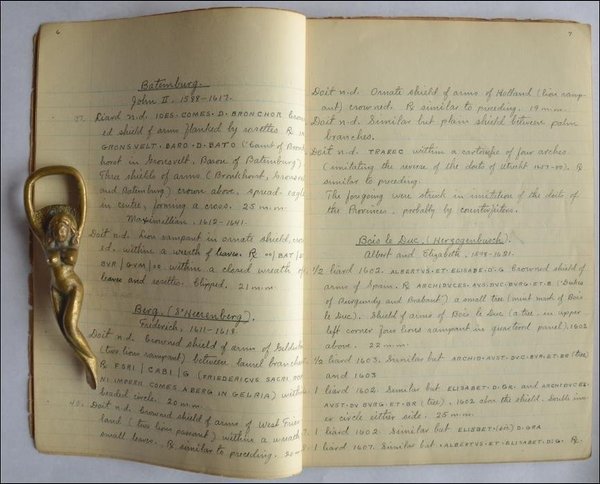 6
Batenburg.
John II. 1588-1617.
37. Liard n.d. IOES·COMES·D·BRONCHOR Crown-
ed shield of arms flanked by rosettes ℞ IN
GRONSVELT·BARO·D·BATO (Count of Bronk-
horst in Gronsvelt, Baron of Batenburg)
Three shields of arms (Bronkhorst, Gronsveld
and Batenburg) crown above, spread eagle
in centre, forming a cross. 25 m.m.
Maximilian. 1612-1641.
Doit n.d. Lion rampant in ornate shield, crown-
ed, within a wreath of leaves. ℞ /BAT/
BVR/GVM/ within a closed wreath of
leaves and rosettes. Clipped. 21 m.m.
Berg. (S'Heerenberg).
Frederick. 1611-1618.
Doit n.d. Crowned shield of arms of Gelderland
(two lions rampant) between laurel branches
℞ FORI/CABI/G (FRIEDERICUS SACRI ROMA-
NI IMPERII COMES ABERG IN GELRIA) within
beaded circle. 20 m.m.
40. Doit n.d. Crowned shield of arms of West Fries-
land (two lions passant) within a wreath of
small leaves. ℞ similar to preceding. 20 m.m
7
Doit n.d. Ornate shield of arms of Holland (lion ramp-
ant) crowned. ℞ similar to preceding. 19 m.m.
Doit n.d. Similar but plain shield between palm
branches.
Doit n.d. TPAREC within a cartouche of four arches.
(imitating the reverse of the doits of Utrecht). ℞
similar to preceding.
The foregoing were struck in imitation of the doits of
the Provinces, probably by counterfeiters.
Bois le Duc. (Herzogenbusch).
Albert and Elizabeth. 1598-1621.
1/2 liard 1602. ALBERTVS·ET·ELISABE·D·G Crowned shield of
arms of Spain. ℞ ARCHIDVCES·AVS·DVC·BVRG·ET·B (Dukes
of Burgundy and Brabant) a small tree (mint mark of Bois
le Duc). Shield of arms of Bois le Duc (a tree, in upper
left corner four lions rampant in quartered panel). 1602
above. 22 m.m.
1/2 liard 1603. Similar but ARCHID·AVST·DVC·BVR·ET·BR (tree)
and 1603
1 liard 1602. Similar but ELISABET·D·GR· and ARCHIDVCES·
AVST·DV BVRG·ET·BR (tree). 1602 above the shield. Double inn-
er circle either side. 25 m.m.
1 liard 1602. Similar but ELISBET· D·GRA
1 liard 1607. Similar but ·ALBERTVS·ET·ELISABET·D·G· ℞